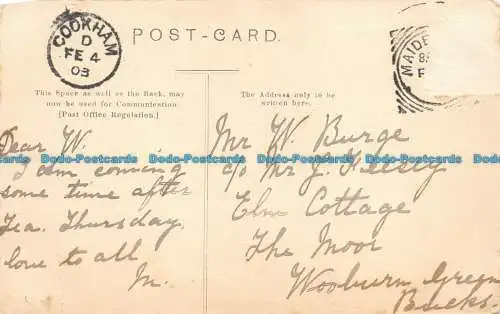 POST-CARD.
COOKHAM
D
FE 4
03
MAIDE
8
F
This Space as well as the Back, may
now be used for Communication.
[Post Office Regulation.]
The Address only to be
written here.
Dear W.
I am coming
some time after
Tea. Thursday.
love to all
M.
Mr W. Burge
c/o Mr J.
Elm Cottage
The Moor
Wooburn Green
Bucks.
Dodo-Postcards Dodo-Postcards Dodo-Postcards Dodo-Postcards Dodo-Postcards